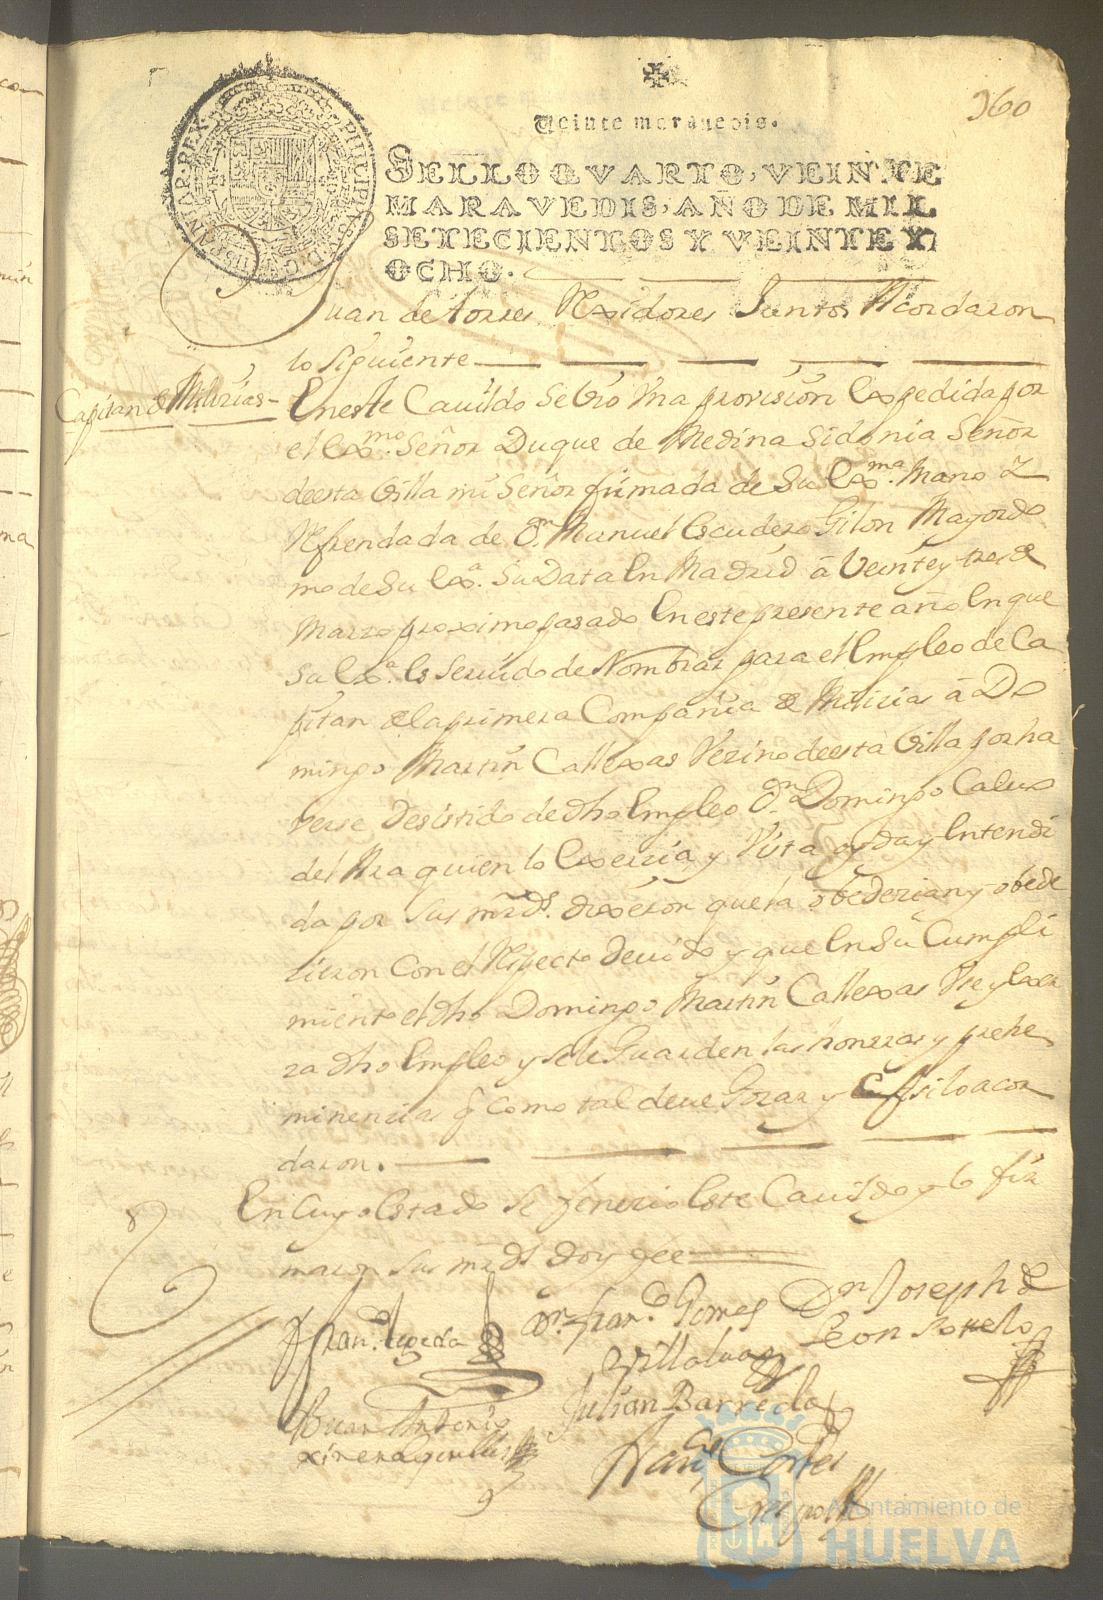 160
Veinte maravedis.
SELLO QVARTO, VEINTE
MARAVEDIS, AÑO DE MIL
SETECIENTOS Y VEINTE Y
OCHO.
Juan de torres Rexidores Juntos Acordaron
lo siguiente
Capitan de Milicias
En este Cavildo se vio Vna provision Expedida por
el Exmo. Señor Duque de Medina Sidonia Señor
de esta Villa mi Señor firmada de Su Exma. Mano Y
Refrendada de Dn. Manuel Escudero Gilon Mayordo
mo de Su Exa. Su Data En Madrid â Veinte y tres de
Marzo proximo pasado En este presente año En que
su Exa. Es Servido de Nombrar para el Empleo de Ca
pitan de la primera Compañia de Milicias â Do
mingo Martin Callexas Vezino de esta Villa por ha
verse Desistido de dho Empleo Dn. Domingo
del quien lo Exerzia y Vista oyda y Entendi
da por sus mrds. dixeron que la obedezian y obede
cieron Con el Respecto Devido y que En Su Cumpli
miento el dho Domingo Martin Callexas Vse y Exer
za dho Empleo y se le Guarden las honrras y prehe
minencias q como tal deve Gozar y asi lo acor
daron.
En Cuyo Estado se fenezio Este Cavildo y lo fir
maron sus mrds doy fee
Fran.co Zepeda
Dn. Fran.co Gomes
Dn Joseph de
Leon Sotelo
Villalva
Juan Antonio
Julian Barreda
Franco. Cortes